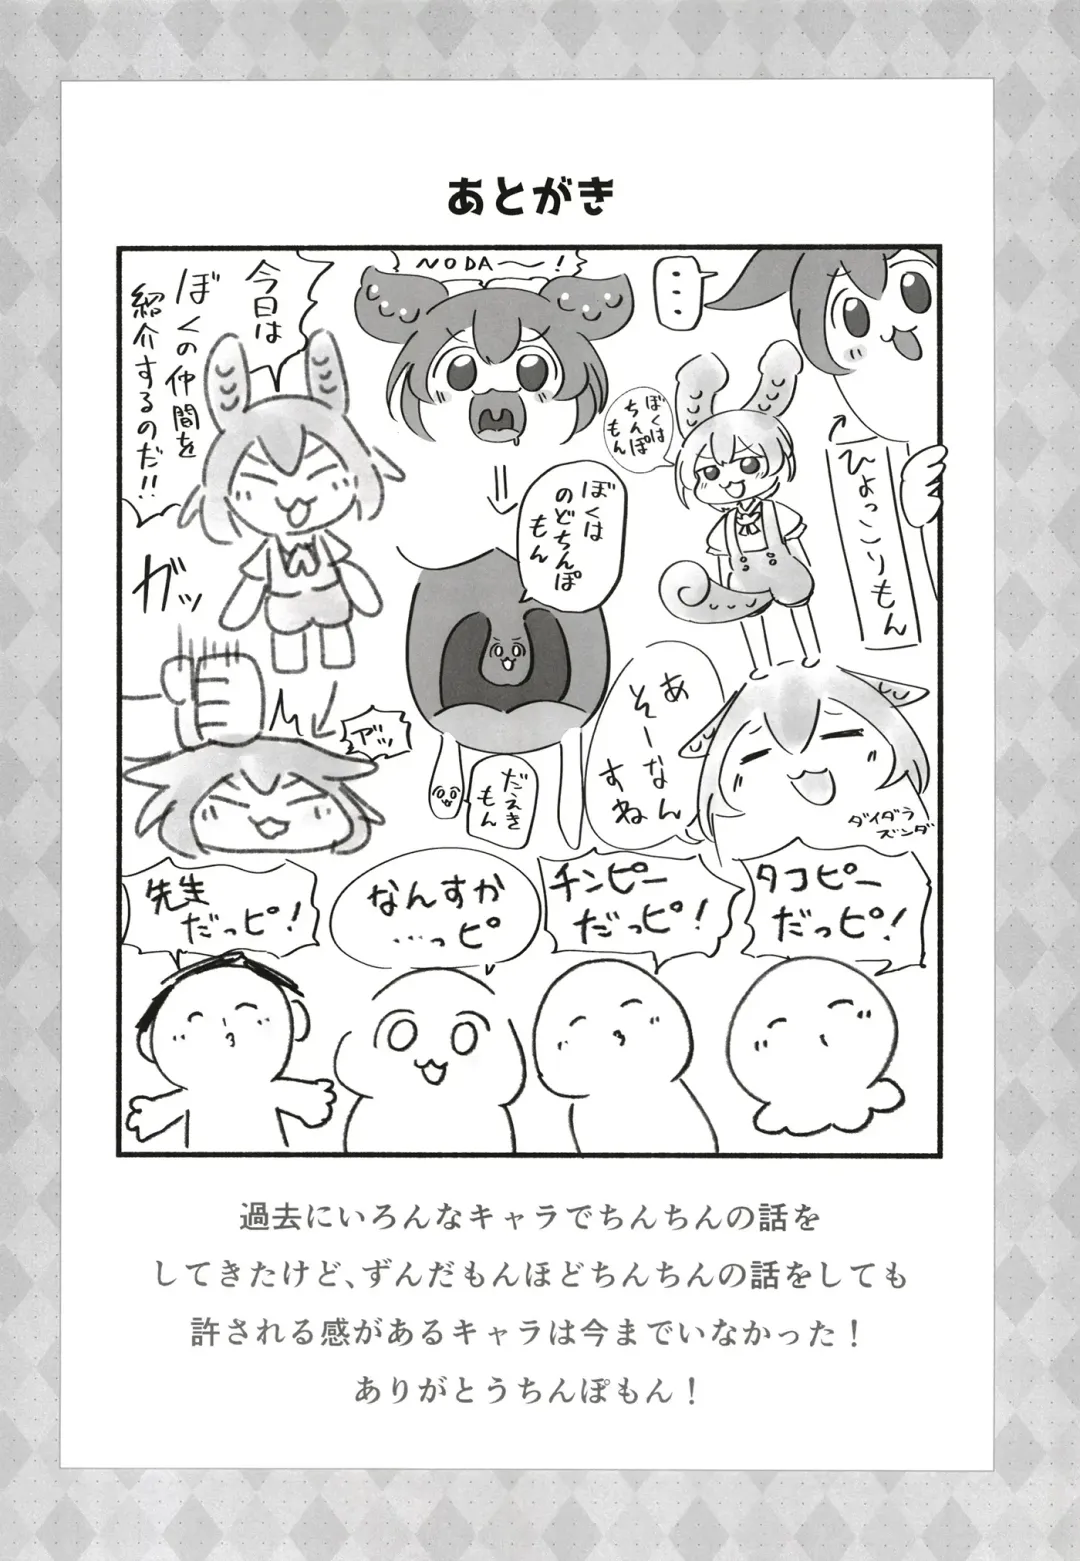 あとがき
今日は
ぼくの仲間を
紹介するのだ!!
NODA〜!
…
ぼくは
ちんぽ
もん
ひょっこりもん
ぼくは
のどちんぽ
もん
ガッ
ガッ
だえき
もん
あ
そーなん
すね
ダイダラ
ズンダ
先生
だっピ!
なんすか
…っピ
チンピー
だっピ!
タコピー
だっピ!
過去にいろんなキャラでちんちんの話を
してきたけど、ずんだもんほどちんちんの話をしても
許される感があるキャラは今までいなかった！
ありがとうちんぽもん！